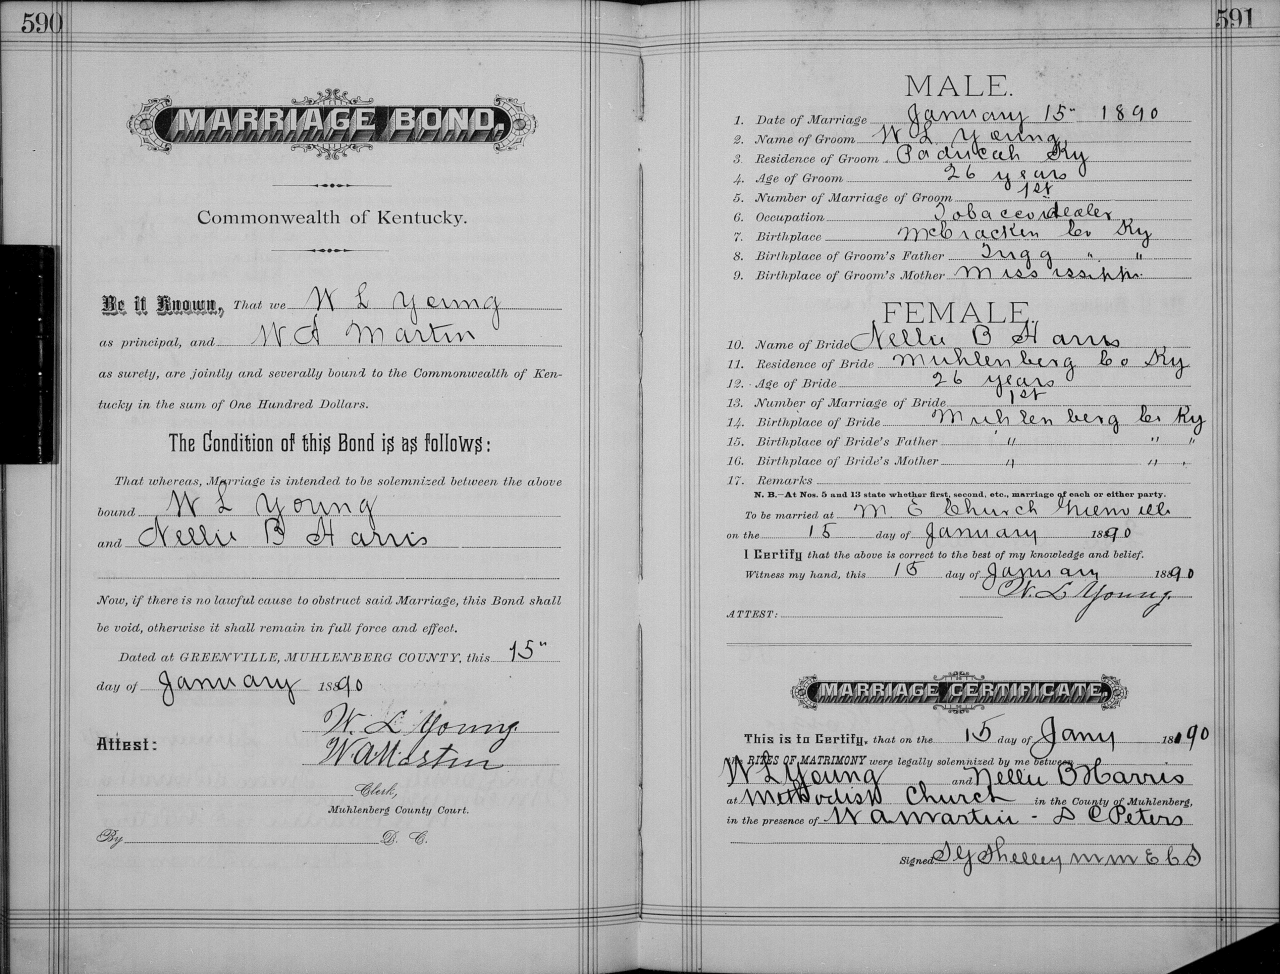 590
MARRIAGE BOND,
Commonwealth of Kentucky.
Be it Known, That we W L Young
as principal, and W A Martin
as surety, are jointly and severally bound to the Commonwealth of Ken-
tucky in the sum of One Hundred Dollars.
The Condition of this Bond is as follows:
That whereas, Marriage is intended to be solemnized between the above
bound W L Young
and Nellie B Harris
Now, if there is no lawful cause to obstruct said Marriage, this Bond shall
be void, otherwise it shall remain in full force and effect.
Dated at GREENVILLE, MUHLENBERG COUNTY, this 15"
day of January 1890
W. L Young
Attest: W A Martin
Clerk,
Muhlenberg County Court.
By D. C.
591
MALE.
1. Date of Marriage January 15" 1890
2. Name of Groom W L Young
3. Residence of Groom Paducah Ky
4. Age of Groom 26 years
5. Number of Marriage of Groom 1st
6. Occupation Tobacco dealer
7. Birthplace McCracken Co Ky
8. Birthplace of Groom's Father Trigg " "
9. Birthplace of Groom's Mother Mississippi
FEMALE.
10. Name of Bride Nellie B Harris
11. Residence of Bride Muhlenberg Co Ky
12. Age of Bride 26 years
13. Number of Marriage of Bride 1st
14. Birthplace of Bride Muhlenberg Co Ky
15. Birthplace of Bride's Father " " "
16. Birthplace of Bride's Mother " " "
17. Remarks
N. B.—At Nos. 5 and 13 state whether first, second, etc., marriage of each or either party.
To be married at M. E Church Greenville
on the 15 day of January 1890
I Certify that the above is correct to the best of my knowledge and belief.
Witness my hand, this 15 day of January 1890
W. L Young
ATTEST:
MARRIAGE CERTIFICATE,
This is to Certify, that on the 15 day of Jany 1890
the RITES OF MATRIMONY were legally solemnized by me between
W L Young and Nellie B Harris
at Methodist Church in the County of Muhlenberg,
in the presence of W A Martin - D C Peters
Signed Shelley M M E C S